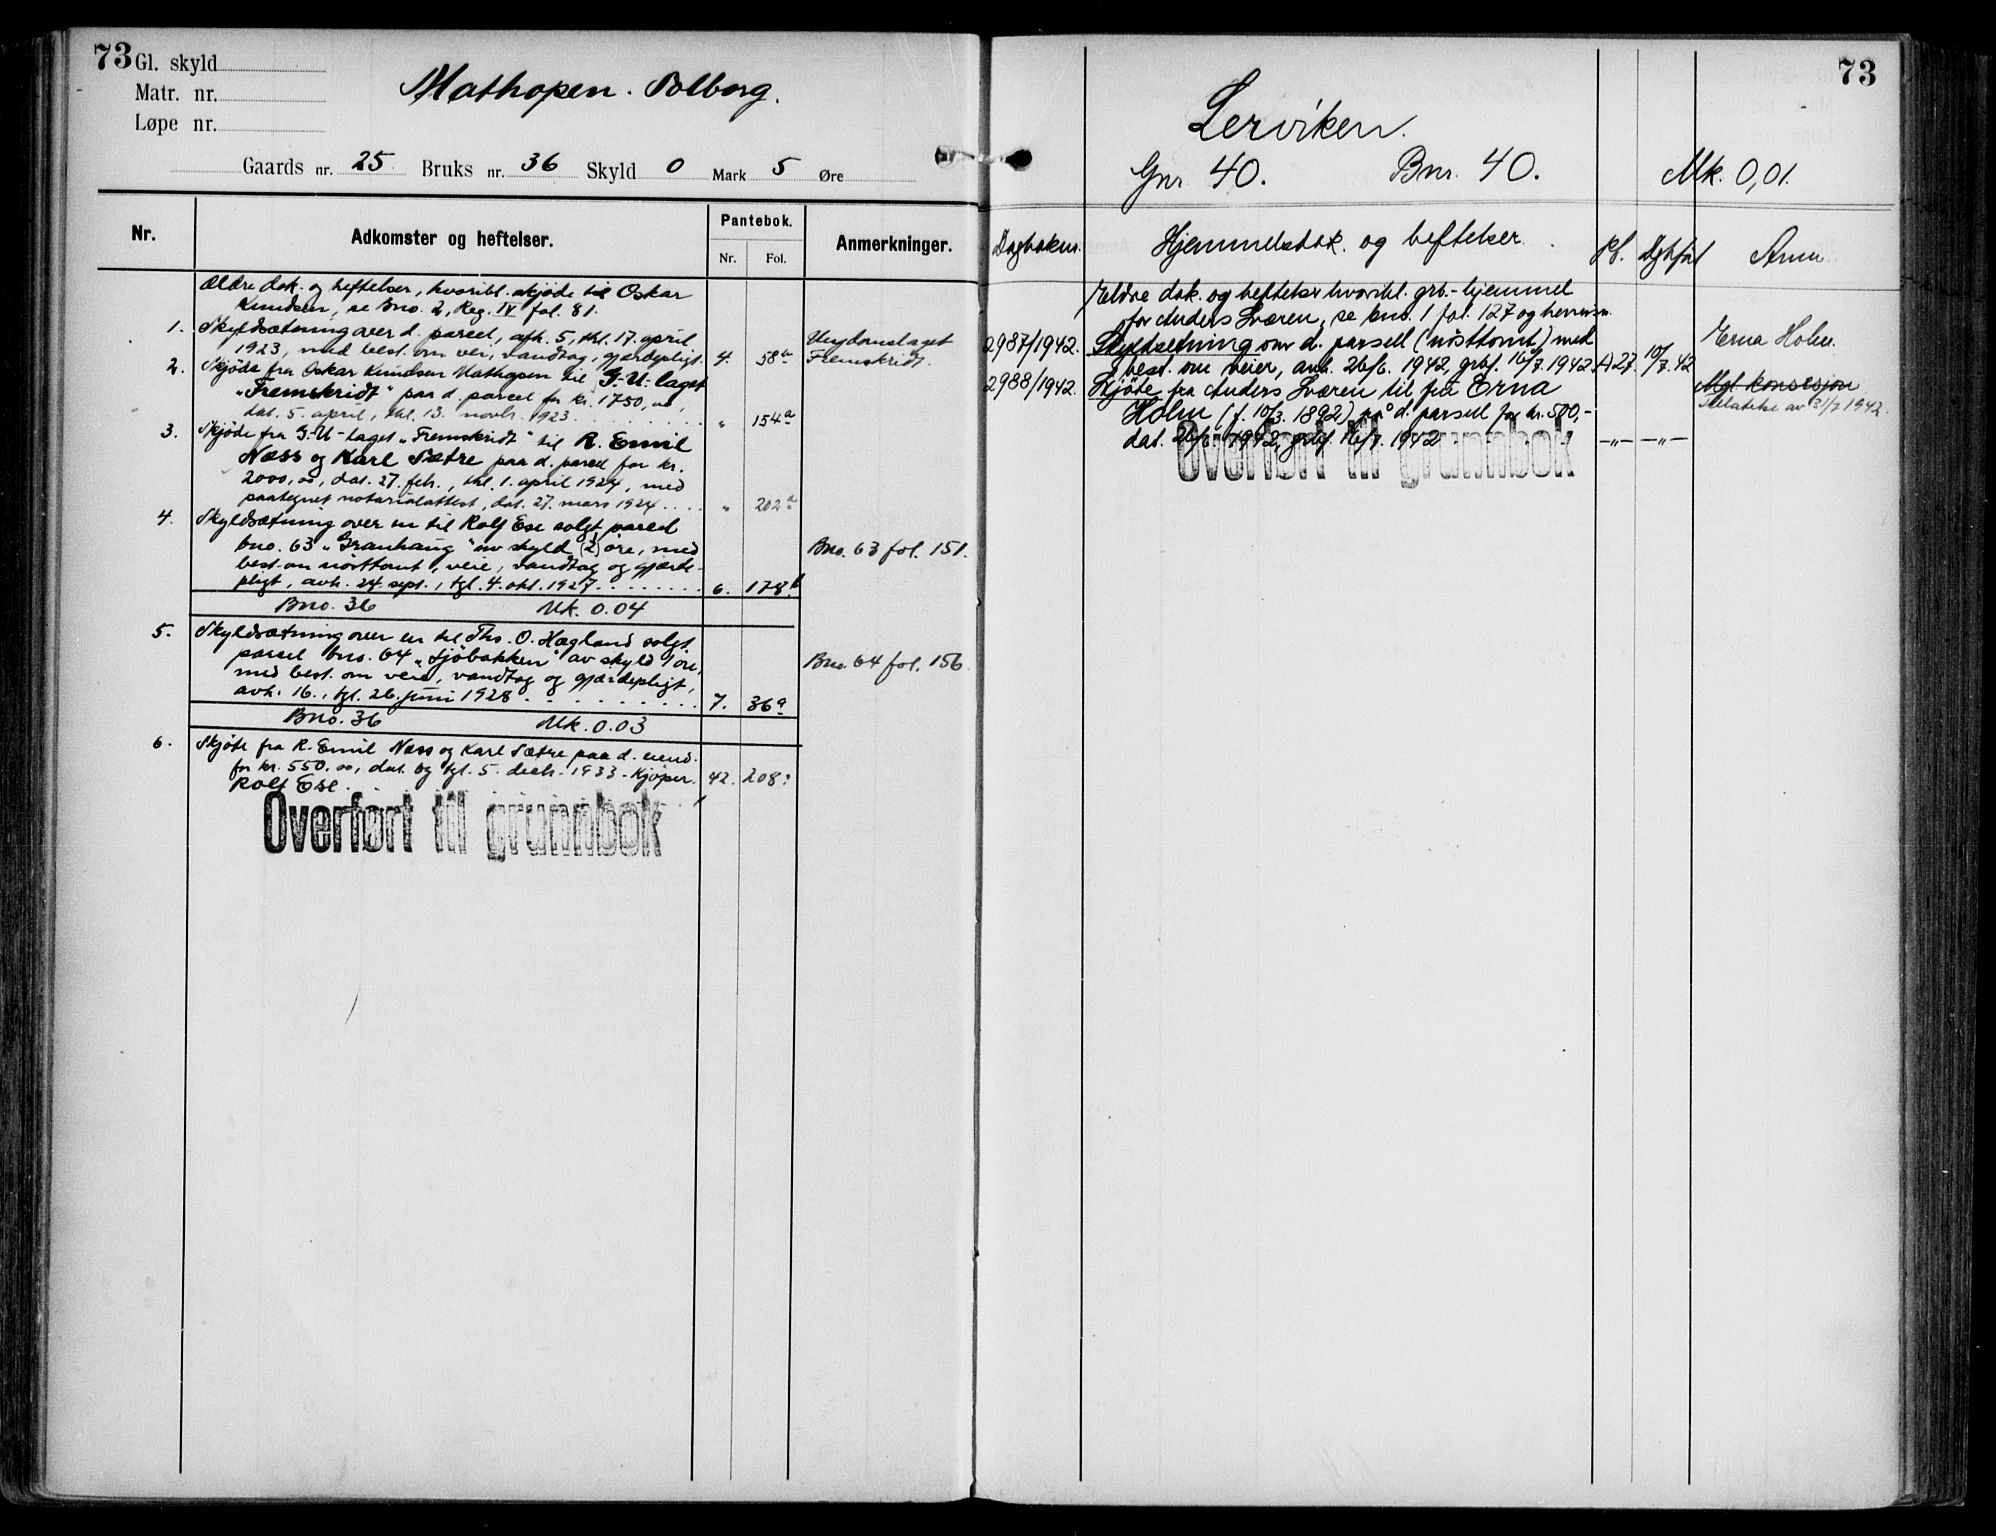 73
Gl. skyld
Matr. nr.
Løpe nr.
Mathopen. Solborg.
Gaards nr. 25 Bruks nr. 36 Skyld 0 Mark 5 Øre
Nr.
Adkomster og heftelser.
Pantebok.
Nr. Fol.
Anmerkninger.
Ældre dok. og heftelser, hvoribl. skjøde til Oskar
Knudsen, se Bno. 2, Reg. IV fol. 81.
1. Skyldsætning over d. parcel, afh. 5, thl. 17. april
1923, med best. om vei, vandtag, gjærdepligt. 4. 58b
Ungdomslaget
Fremskridt.
2. Skjøde fra Oskar Knudsen Mathopen til G-U-laget
"Fremskridt" paa d. parcel for kr. 1750,00,
dat. 5. april, thl. 13. novbr. 1923. " 154a
3. Skjøde fra G-U-laget "Fremskridt" til R. Emil
Næss og Karl Sætre paa d. parcel for kr.
2000,00, dat. 27. feb., thl. 1. april 1924, med
paategnet notarialattest, dat. 27. mars 1924. " 202a
4. Skyldsætning over en til Rolf Ese solgt parcel
bno. 63 "Granhaug" av skyld (2) øre, med
best. om nösttomt, veie, vandtag og gjærde-
pligt, avh. 24. sept., tgl. 4. okt. 1927. 6. 178b
Bno. 63 fol. 151.
Bno. 36 Mk. 0.04
5. Skyldsætning over en til Ths. O. Hægland solgt
parsel bno. 64 "Sjöbakken" av skyld 1 öre,
med best. om veie, vandtag og gjærdepligt,
avh. 16., tgl. 26. juni 1928. 7. 36a
Bno. 64 fol. 156
Bno. 36 Mk. 0.03
6. Skjøte fra R. Emil Næss og Karl Sætre paa d. eiend.
for kr. 550.00, dat. og tgl. 5. decbr. 1933. Kjøper
Rolf Ese. 42. 208.
Overført til grunnbok
73
Lerviken.
Gnr 40. Bnr. 40. Mk. 0,01.
Dagboknr. Hjemmelsdok. og heftelser. Pb. Dgbført Anm.
Eldre dok. og heftelser hvoribl. grb.-hjemmel
for Anders Sværen, se bno. 1 fol. 127 og henvisn.
2987/1942. Skyldsetning over d. parsell (nösttomt) med
best. om veier, avh. 26/6. 1942, grbf. 16/7. 1942. A 27. 10/7. 42
Erna Holm.
2988/1942. Skjöte fra Anders Sværen til frk Erna
Holm (f. 10/3. 1892) på d. parsell for kr. 500,-
dat. 26/6. 1942, grbf. 16/7. 1942 -"- -"-
Mgl. konsesjon
Tillatelse av 31/7 1942.
Overført til grunnbok